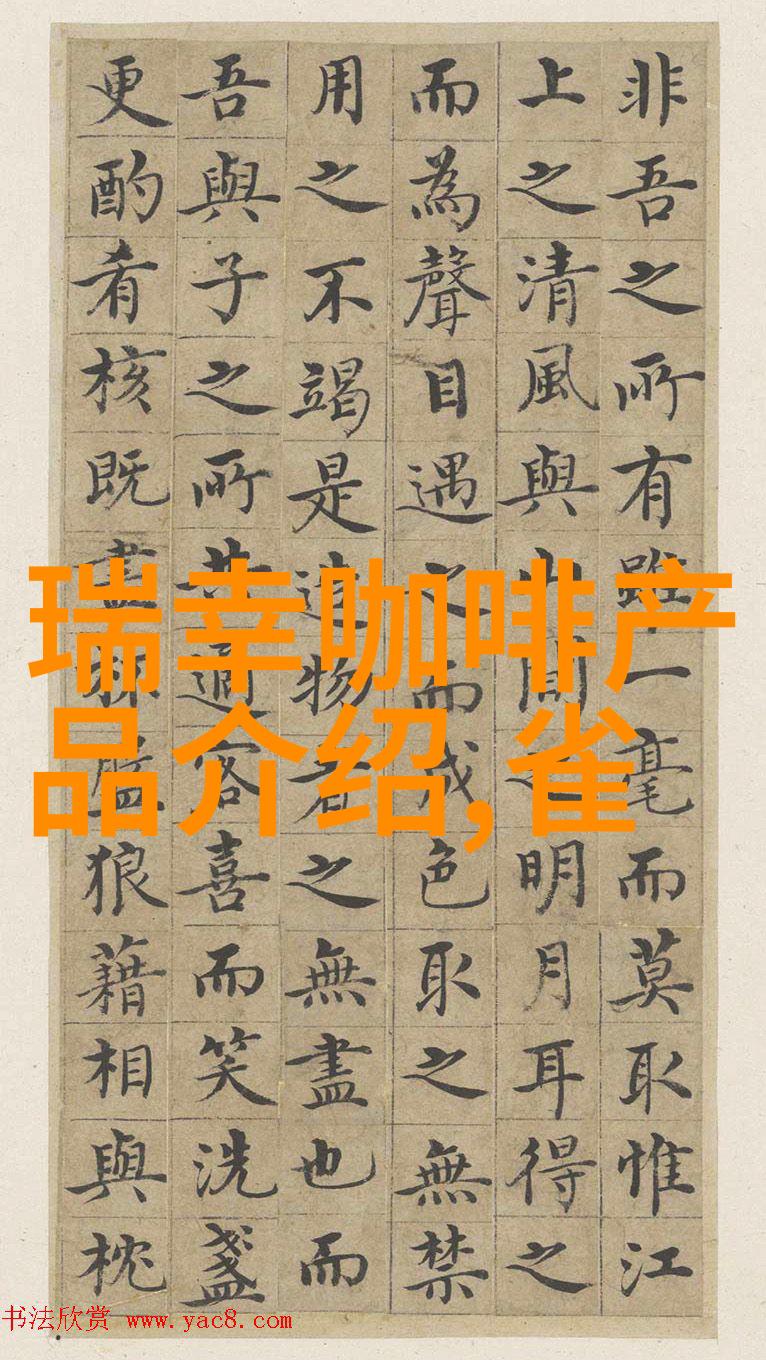 非吾之所有雖一毫而莫取惟江
上之清風與山間之明月耳得之
而為聲目遇之而成色取之無禁
用之不竭是造物者之無盡也而
吾與子之所共適客喜而笑洗盞
更酌肴核既盡杯盤狼藉相與枕
瑞幸咖啡产
品介绍,雀
书法欣赏 www.yac8.com